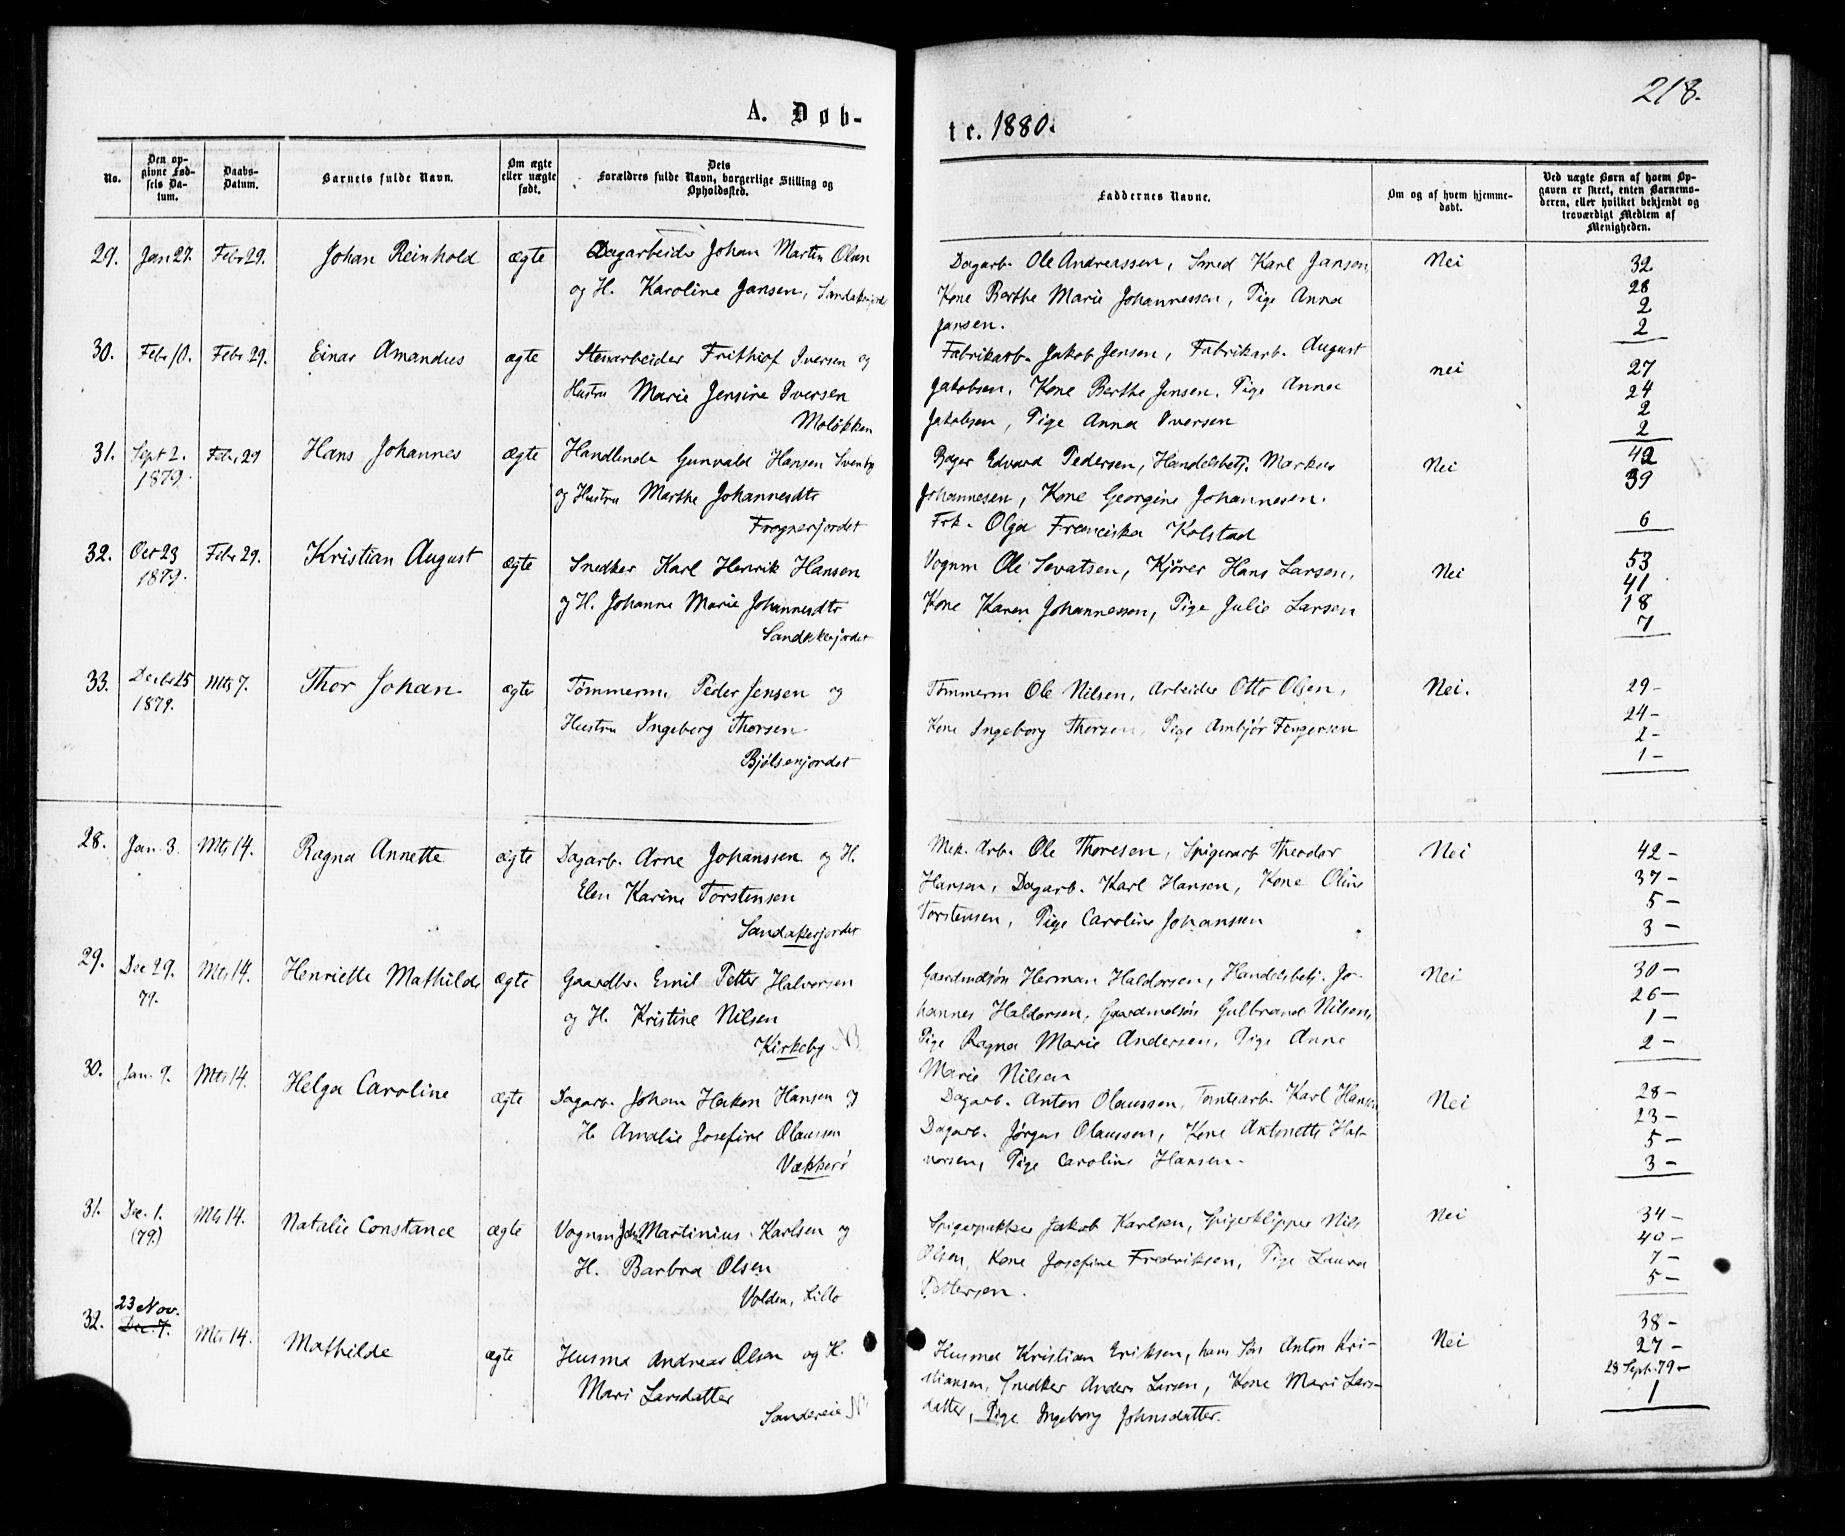 218.
A. Døb-
te. 1880.
No.
Den op-
givne Fød-
sels Da-
tum.
Daabs-
Datum.
Barnets fulde Navn.
Om ægte
eller uægte
født.
Dets
Forældres fulde Navn, borgerlige Stilling og
Opholdssted.
Faddernes Navne.
Om og af hvem hjemme-
døbt.
Ved uægte Børn af hvem Op-
gaven er skeet, enten Barnemo-
deren, eller hvilket bekjendt og
troværdigt Medlem af
Menigheden.
29. Jan 27. Febr 29. Johan Reinhold ægte Dagarbeider Johan Martin Olsen
og H. Karoline Jansen, Sandakerjord
Dagarb. Ole Andreassen, Smed Karl Jansen,
Kone Berthe Marie Johannessen, Pige Anna
Jansen.
Nei
32
28
2
2
30. Febr 10. Febr 29. Einar Amandus ægte Stenarbeider Frithiof Iversen og
Hustru Marie Jensine Iversen
Moløkken
Fabrikarb. Jakob Jensen, Fabrikarb. August
Jakobsen, Kone Berthe Jensen, Pige Anna
Jakobsen, Pige Anna Iversen
nei
27
24
2
2
31. Sept 2.
1879. Febr 29 Hans Johannes ægte Handlende Gunvald Hansen Svenby
og Hustru Marthe Johannesdtr
Frognerjordet
Bager Edvard Pedersen, Handelsbetj. Markus
Johannesen, Kone Georgine Johannesen.
Frk. Olga Franciska Kolstad
Nei
42
39
6
32. Oct 23
1879. Febr 29. Kristian August ægte Snedker Karl Henrik Hansen
og H. Johanne Marie Johannesdtr
Sandakerjordet
Vognm Ole Sevatsen, Kjører Hans Larsen,
Kone Karen Johannessen, Pige Julie Larsen
Nei
53
41
18
7
33. Decbr 25
1879. Mts 7. Thor Johan ægte Tømmerm. Peder Jensen og
Hustru Ingeborg Thorsen
Bjølsenjordet
Tømmerm Ole Nilsen, Arbeider Otto Olsen,
Kone Ingeborg Thorsen, Pige Ambjør Torgersen
Nei.
29-
24-
2-
1-
28. Jan. 3. Mts 14. Ragna Annette ægte Dagarb. Arne Johanssen og H.
Elen Karine Torstensen
Sandakerjordet
Mek. Arb. Ole Thoresen, Spigerarb Theodor
Hansen, Dagarb. Karl Hansen, Kone Oline
Torstensen, Pige Caroline Johansen
Nei
42-
37-
5-
3-
29. Dec 29.
79. Mts 14. Henriette Mathilde ægte Gaardbr. Emil Petter Halvorsen
og H. Kristine Nilsen
Kirkeby NB
Gaardmdsøn Herman Haldorsen, Handelsbetj. Jo-
hannes Haldorsen, Gaardmdsøn Gulbrand Nilsen,
Pige Ragna Marie Andersen, Pige Anne
Marie Nilsen
Nei
30-
26-
1-
2-
30. Jan. 9. Mts 14. Helga Caroline ægte Dagarb. Johan Hakon Hansen og
H. Amalie Josefine Olaussen
Vækkerø
Dagarb. Anton Olaussen, Tomtearb. Karl Hansen
Dagarb. Jørgen Olaussen, Kone Antonette Hal-
vorsen, Pige Caroline Hansen.
Nei
28-
23-
5-
3-
31. Dec. 1.
(79.) Mts 14. Natalie Constance ægte Vognm Joh. Martinius Karlsen og
H. Barbra Olsen
Volden, Lillo
Spigerpakker Jakob Karlsen, Spigerklipper Nils
Olsen, Kone Josefine Fredriksen, Pige Laura
Pettersen.
Nei
34-
40-
7-
5-
32. 23 Nov.
Dec. 7. Mts 14. Mathilde ægte Husmd Andreas Olsen og H.
Mari Larsdatter
Sandereie
Husmd Kristian Eriksen, hans Søn Anton Kri-
stiansen, Snedker Anders Larsen, Kone Mari Lars-
datter, Pige Ingeborg Johnsdatter.
Nei
38-
27-
28 Sept. 79-
1